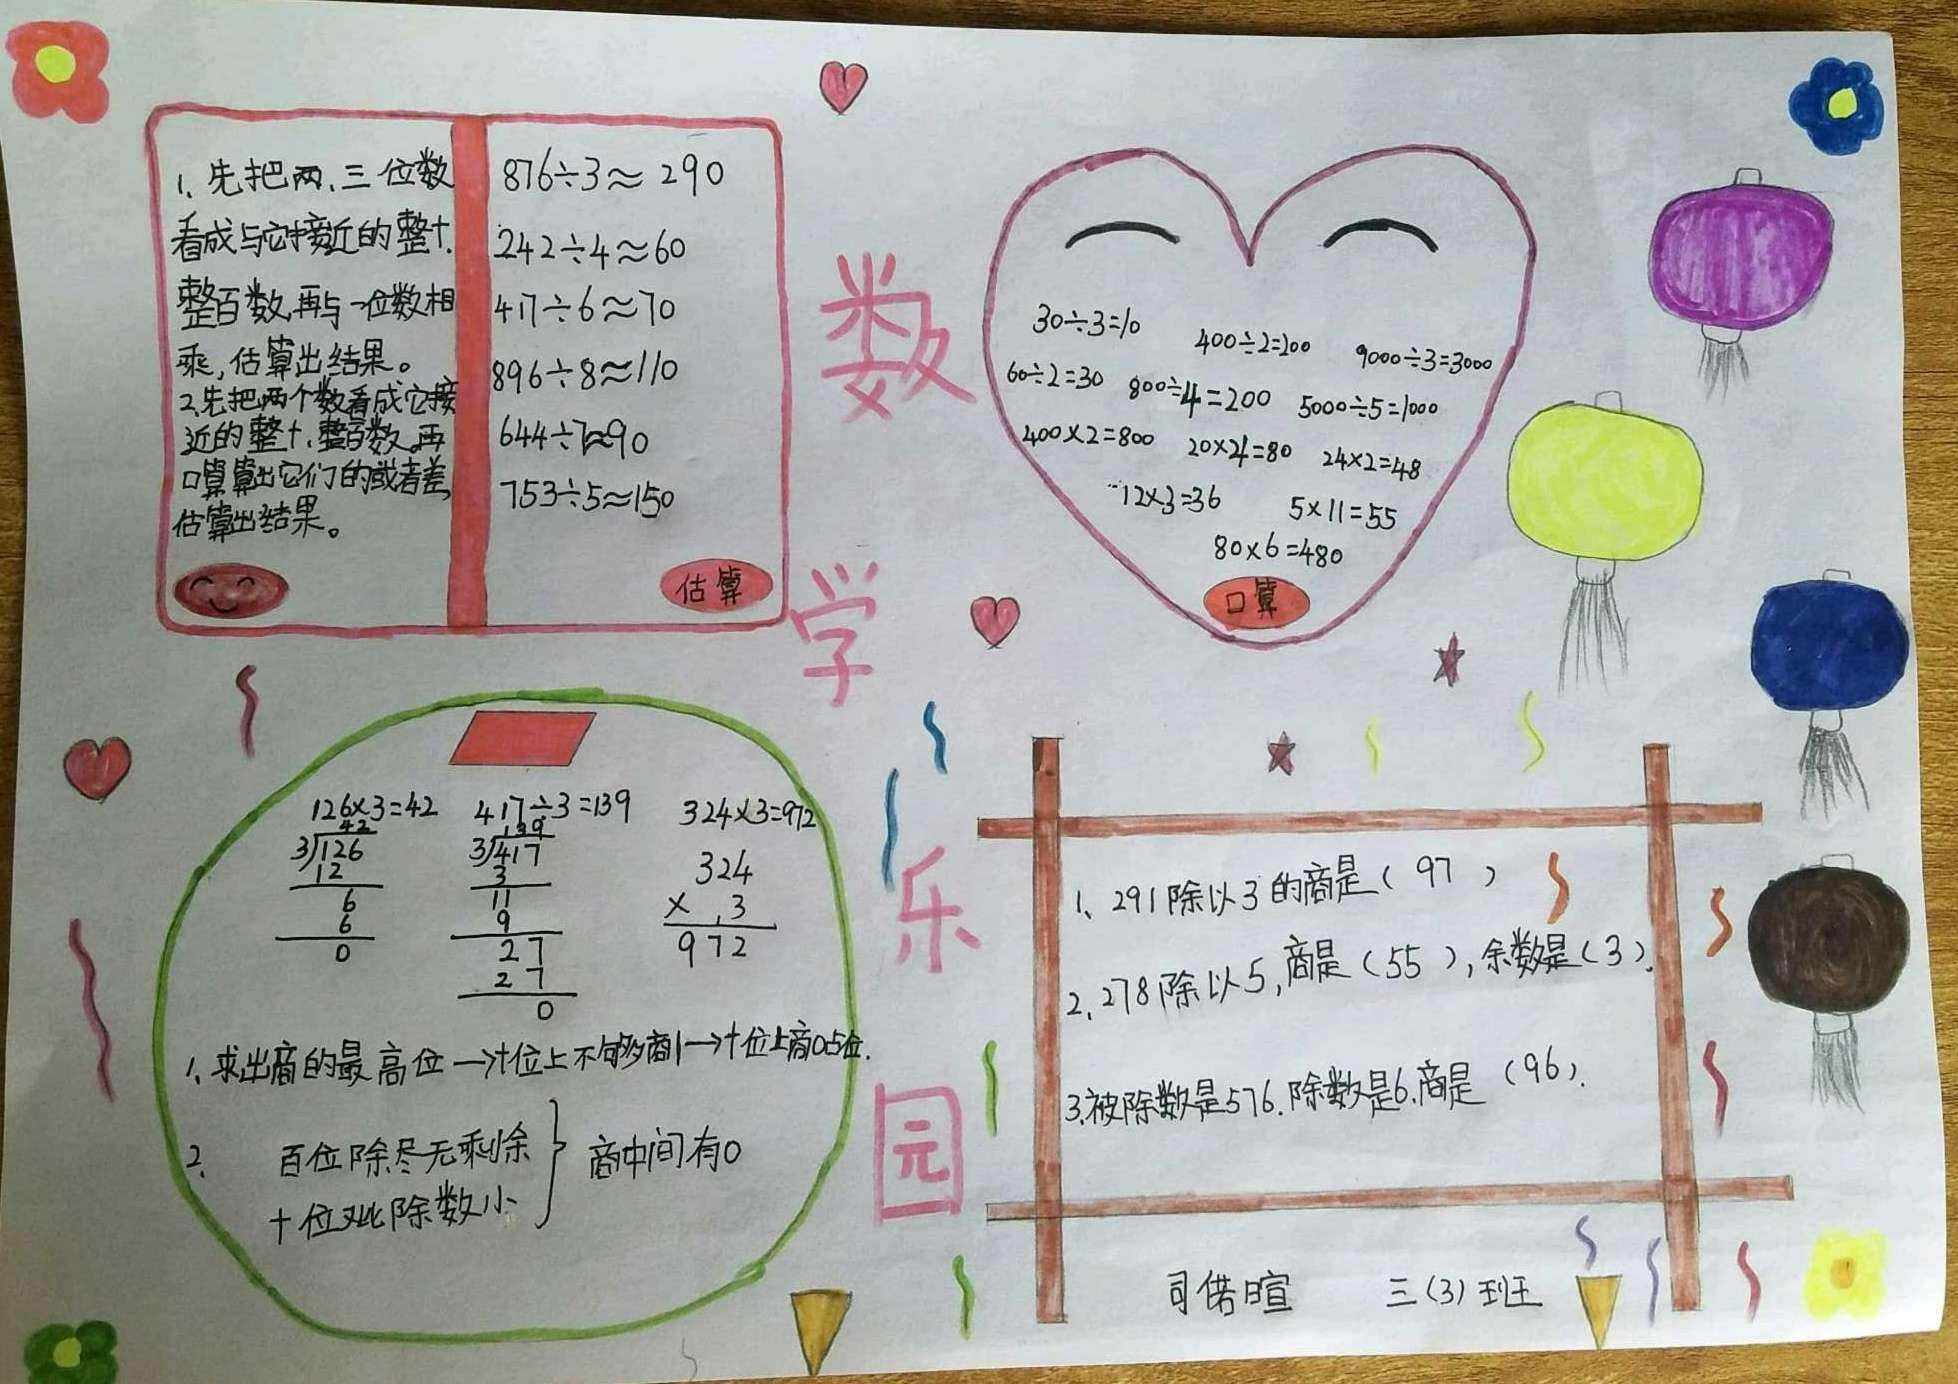 1、先把两、三位数
看成与它接近的整十、
整百数,再与一位数相
乘,估算出结果。
2、先把两个数看成它接
近的整十、整百数。再
口算算出它们的或者差,
估算出结果。
876÷3≈290
242÷4≈60
417÷6≈70
896÷8≈110
644÷7≈90
753÷5≈150
估算
数
学
乐
园
30÷3=10
400÷2=200
9000÷3=3000
60÷2=30
800÷4=200
5000÷5=1000
400×2=800
20×4=80
24×2=48
12×3=36
5×11=55
80×6=480
口算
126×3=42
42
3√126
12
6
6
0
417÷3=139
139
3√417
3
11
9
27
27
0
324×3=972
324
× 3
972
1、求出商的最高位→十位上不够商1→十位上商0占位.
2、百位除尽无剩余
十位又比除数小
} 商中间有0
1、291除以3的商是(97)
2、278除以5,商是(55),余数是(3).
3.被除数是576.除数是6.商是(96).
司偌暄 三(3)班